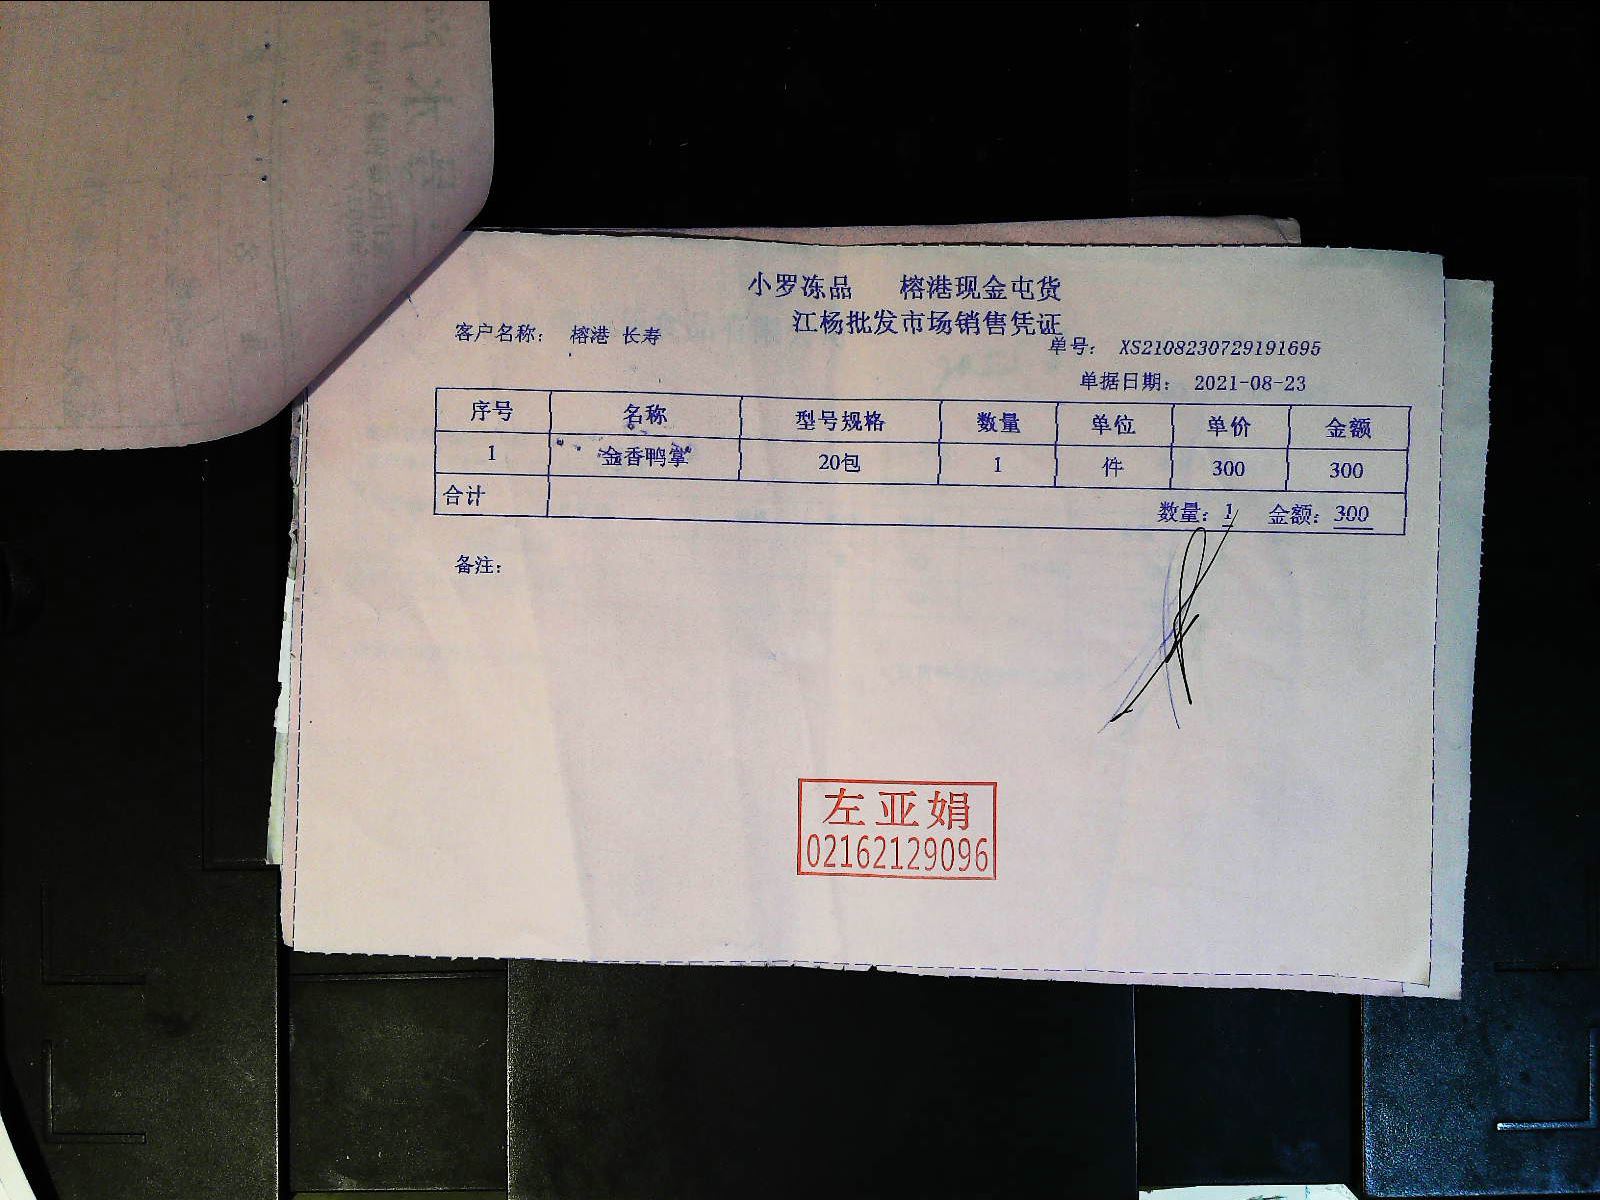 小罗冻品 榕港现金屯货
江杨批发市场销售凭证
客户名称： 榕港 长寿
单号： XS2108230729191695
单据日期： 2021-08-23
序号 名称 型号规格 数量 单位 单价 金额
1 金香鸭掌 20包 1 件 300 300
合计 数量：1 金额：300
备注：
左亚娟
02162129096